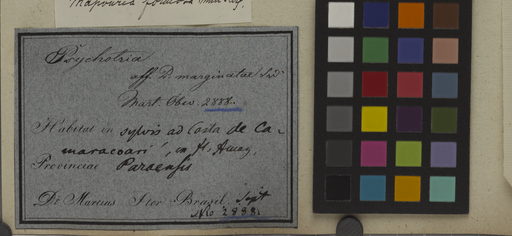 Psychotria
aff. P. marginatae Sw.
Mart. Obs. 2888.
Habitat in sylvis ad Costa de Ca-
maracoari, in fl. Amaz.
Provinciae Paraensis
Dr. Martius Iter Brasil. Sept
No 2888.